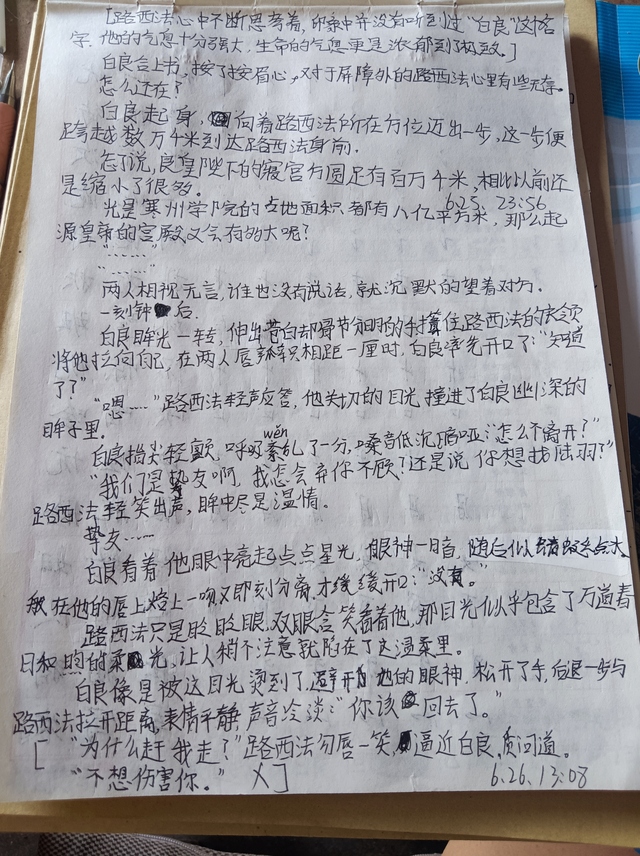 [路西法心中不断思考着，印象中并没有听到过“白良”这个名
字.他的气息十分强大，生命的气息更是浓郁到了极致。]
白良合上书，按了按眉心，对于屏障外的路西法心里有些无奈。
怎么还在？
白良起身，向着路西法所在方位迈出一步，这一步便
跨越数万千米到达路西法身前.
怎了说，良皇陛下的寝宫方圆足有百万千米，相比以前还
是缩小了很多。
6.25. 23:56
光是寒州学院的占地面积都有八亿平方米，那么起
源皇帝的宫殿又会有多大呢？
“……”
“……”
两人相视无言，谁也没有说话，就沉默的望着对方.
一刻钟后.
白良眸光一转，伸出苍白却骨节分明的手揪住路西法的衣领
将他拉向自己，在两人唇相距一厘时，白良率先开口了：“知道
了？”
“嗯……”路西法轻声应答，他关切的目光撞进了白良幽深的
眸子里.
wěn
白良指尖轻颤，呼吸紊乱了一分，嗓音低沉喑哑：“怎么不离开？”
“我们是挚友啊，我怎会弃你不顾？还是说你想找陆羽？”
路西法轻笑出声，眸中尽是温情。
挚友……
白良看着他眼中亮起点点星光，眼神一暗，随后似蜻蜓点水
般在他的唇上烙上一吻又即刻分离才缓缓开口：“没有。”
路西法只是眨眨眼，双眼含笑看着他，那目光似乎包含了万道春
日和煦的柔光，让人稍不注意就陷在了这温柔里。
白良像是被这目光烫到了，避开他的眼神，松开了手，后退一步与
路西法拉开距离，表情平静，声音冷淡：“你该回去了。”
[ “为什么赶我走？”路西法勾唇一笑，逼近白良，质问道。
“不想伤害你。” X]
6.26. 13:08